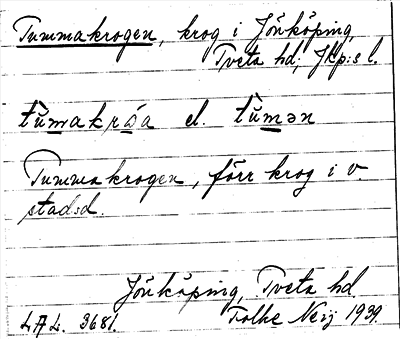 Tummakrogen, krog i Jönköping,
Tveta hd; Jkp:s l.
tùmakróa el. tùmən
Tummakrogen, förr krog i v.
stads:d.
Jönköping, Tveta hd.
LAL. 3681. Folke Neij 1939.